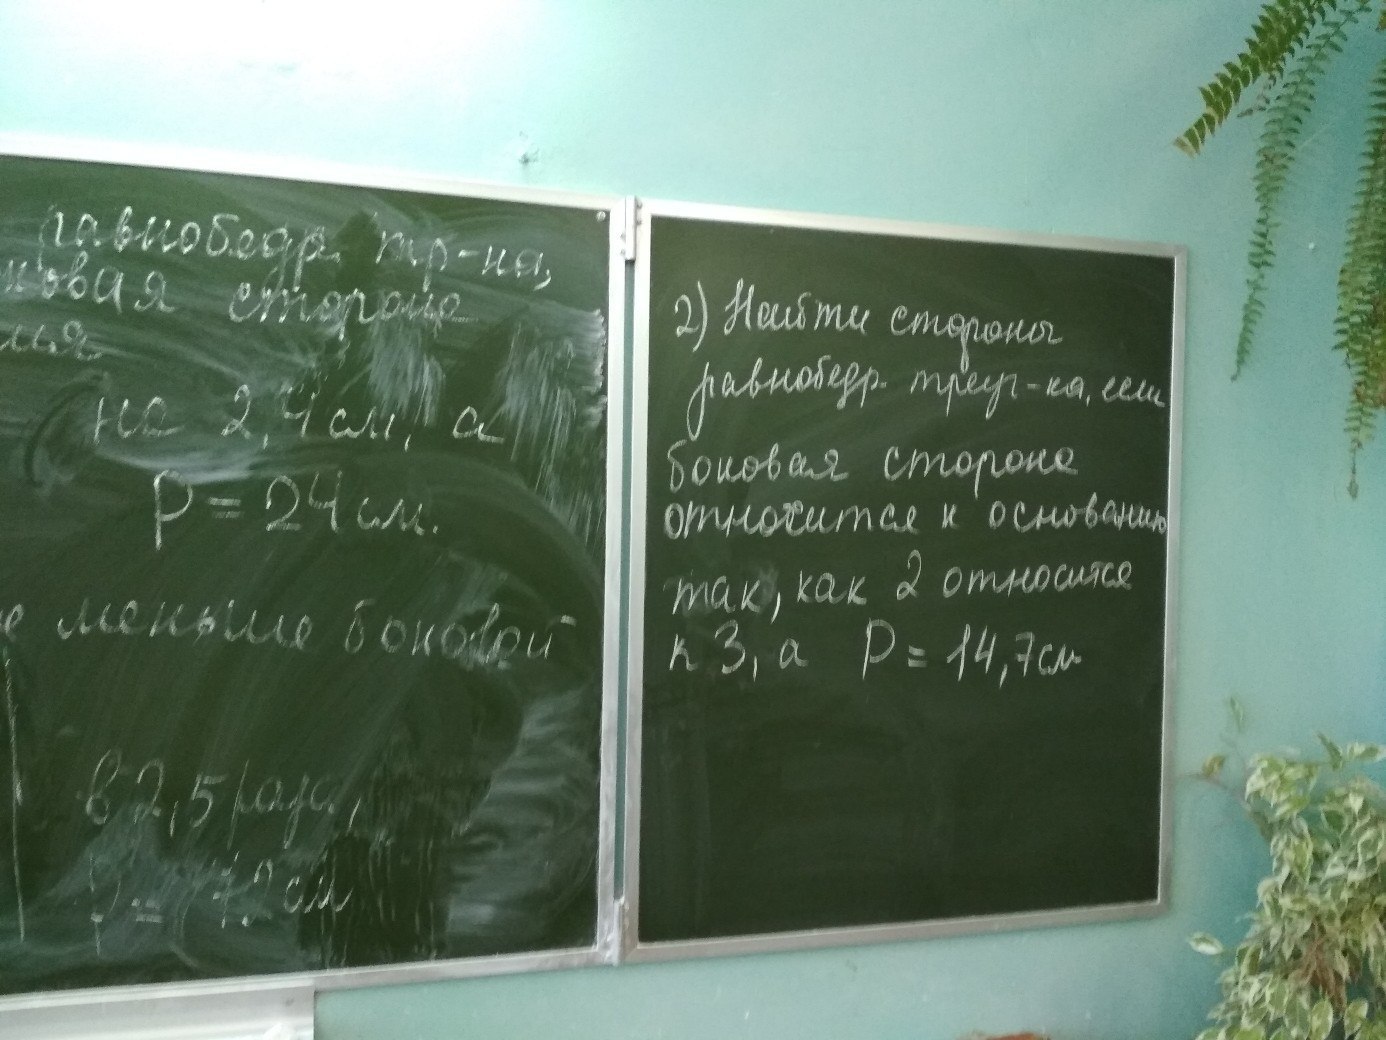 равнобедр. тр-на,
ковая сторона
ния
на 2,4 см, а
P = 24 см.
е меньше боковой
в 2,5 раза,
P = 7,2 см
2) Найти стороны
равнобедр. треуг-ка, если
боковая сторона
относится к основанию
так, как 2 относится
к 3, а P = 14,7 см